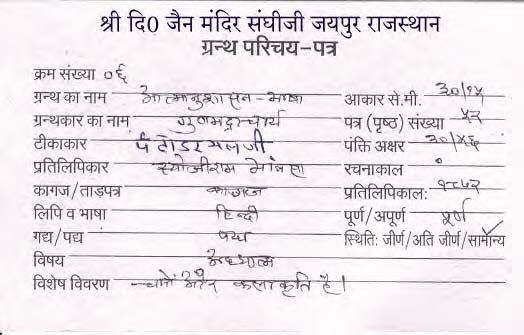 श्री दि0 जैन मंदिर संघीजी जयपुर राजस्थान
ग्रन्थ परिचय-पत्र
क्रम संख्या ०६
ग्रन्थ का नाम आत्मानुशासन-भाषा आकार से.मी. ३०/१५
ग्रन्थकार का नाम गुणभद्राचार्य पत्र (पृष्ठ) संख्या ५२
टीकाकार पं टोडरमलजी पंक्ति अक्षर ३०/४६
प्रतिलिपिकार स्योजीराम रचनाकाल ०
कागज/ताड़पत्र कागज प्रतिलिपिकाल: १८५२
लिपि व भाषा हिन्दी पूर्ण/अपूर्ण पूर्ण
गद्य/पद्य पद्य स्थिति: जीर्ण/अति जीर्ण/सामान्य
विषय अध्यात्म
विशेष विवरण चारों ओर कलाकृति है।